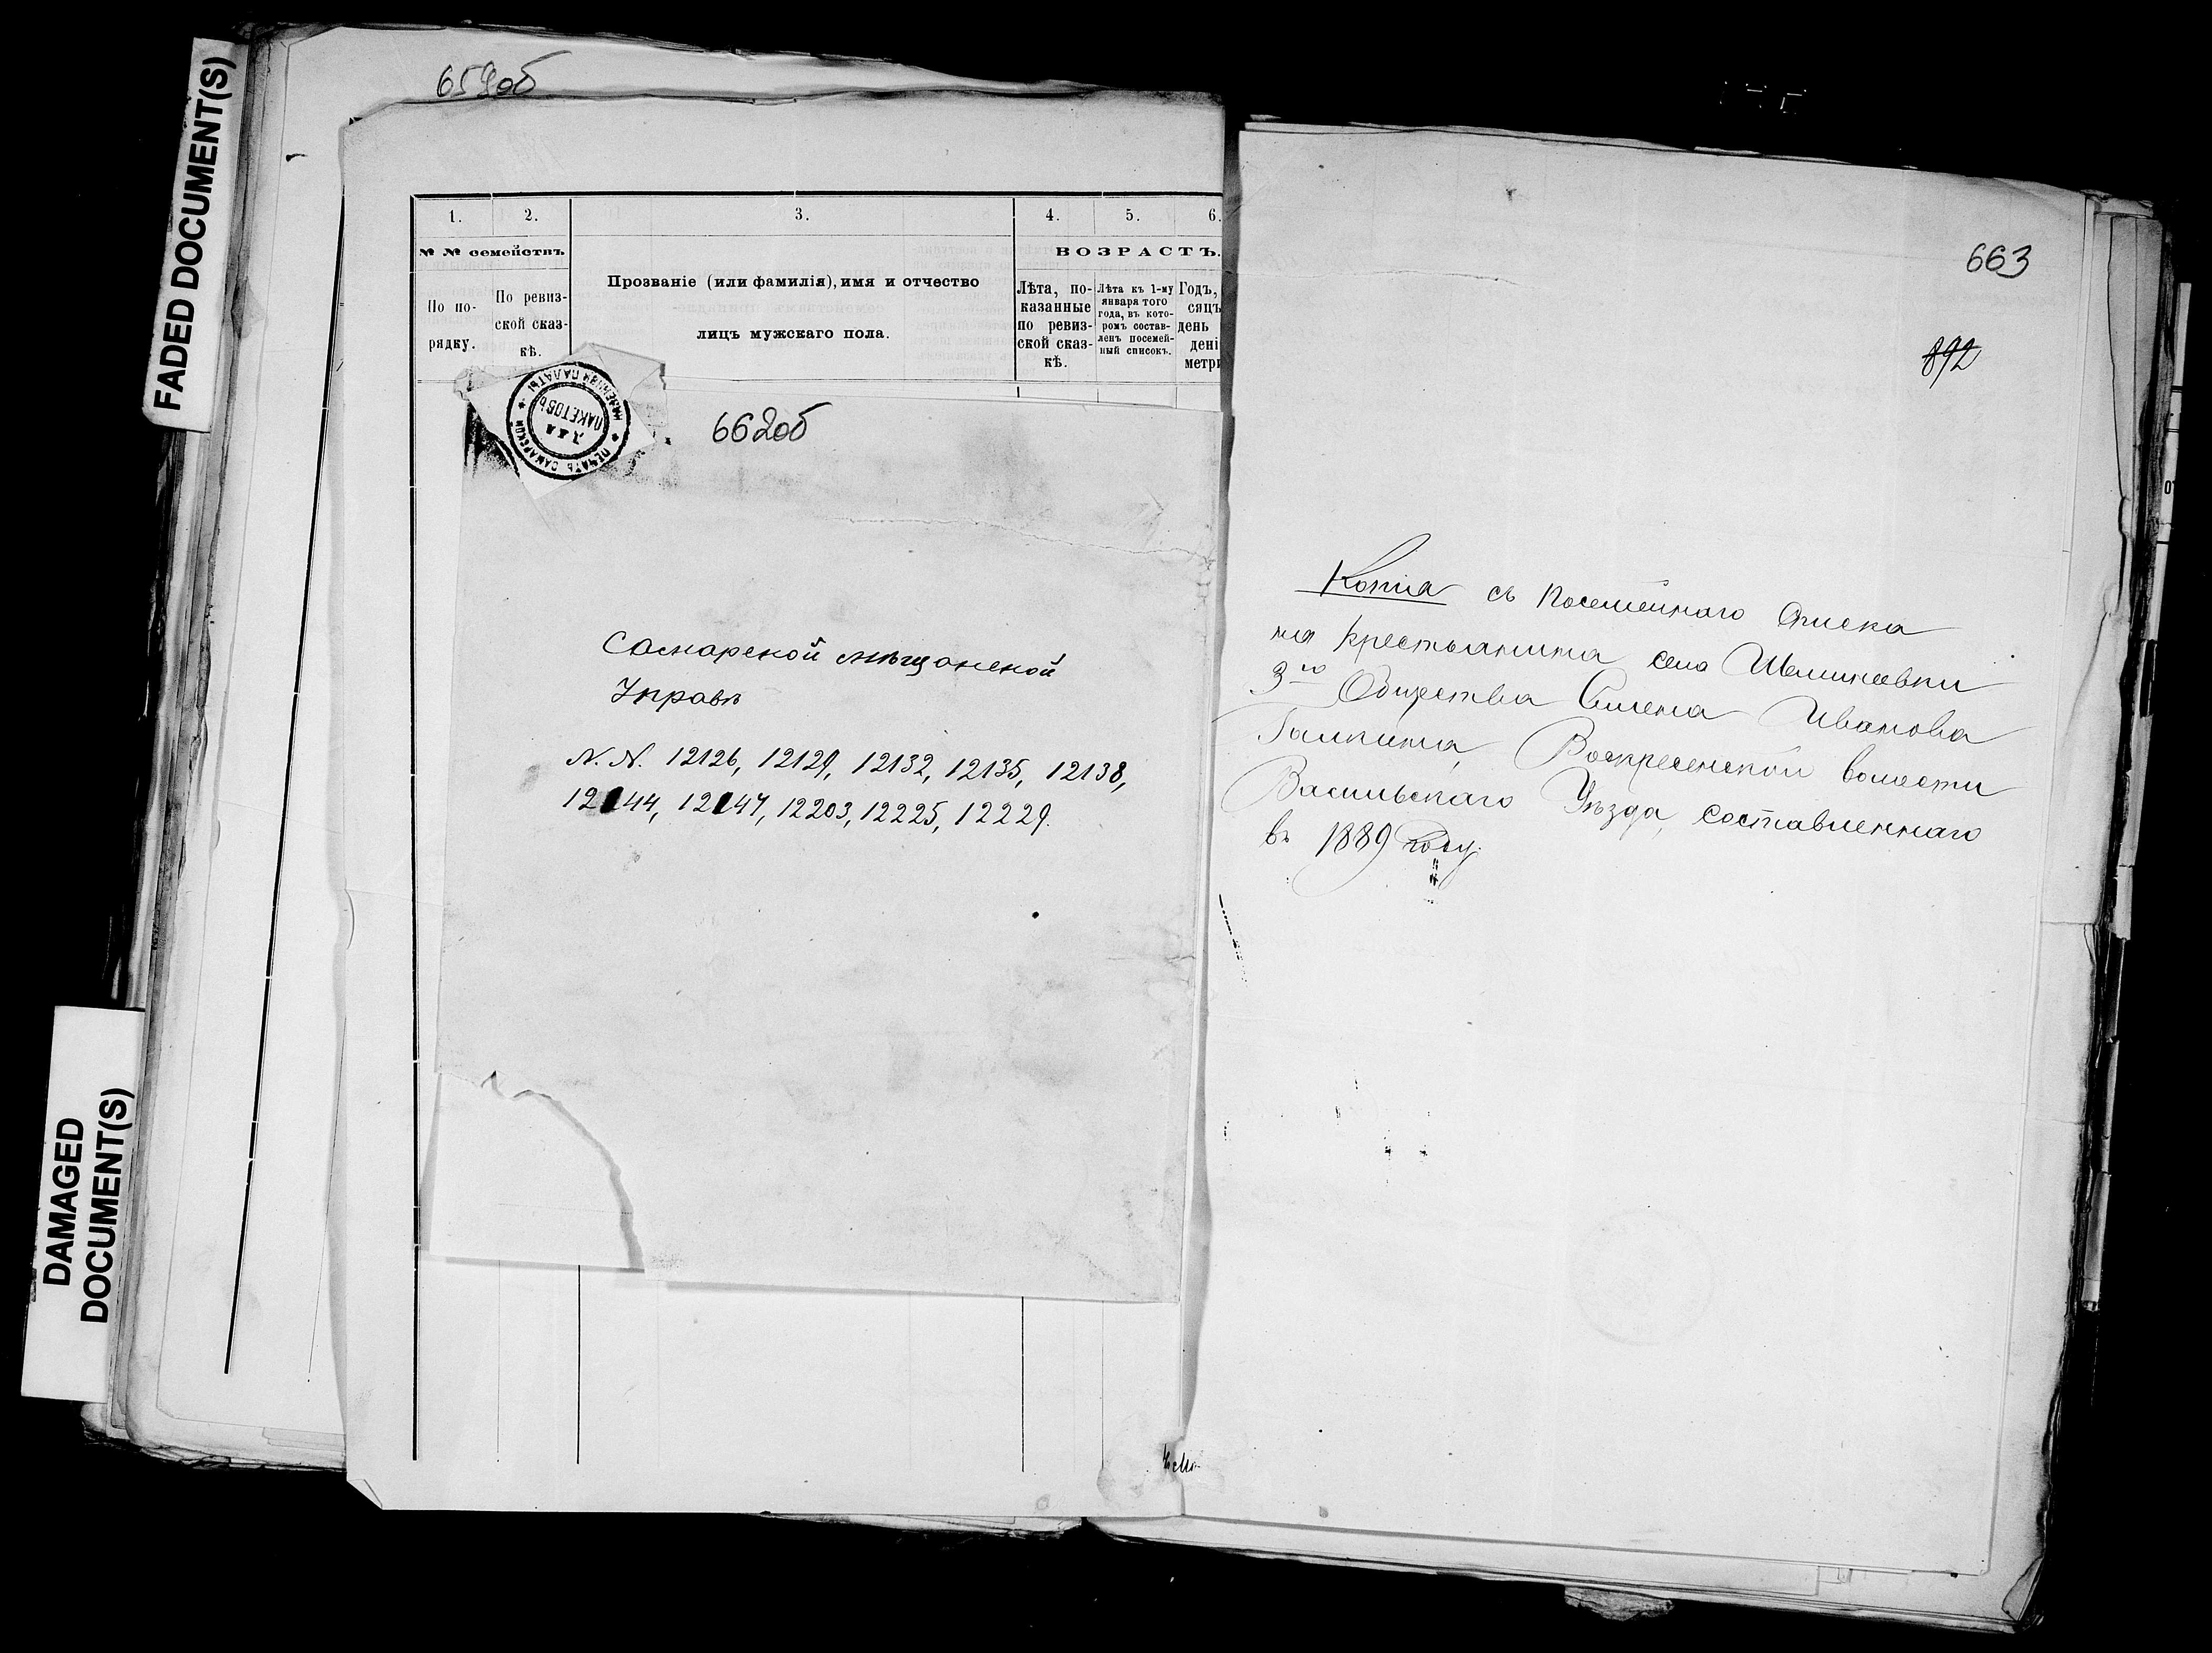 FADED DOCUMENT(S)
DAMAGED
DOCUMENT(S)
659об
1.
2.
3.
4.
5.
6.
№ № семействъ
По по-
рядку.
По ревиз-
ской сказ-
кѣ.
Прозваніе (или фамилія), имя и отчество
лицъ мужскаго пола.
ВОЗРАСТЪ.
Лѣта, по-
казанные
по ревиз-
ской сказ-
кѣ.
Лѣта къ 1-му
января того
года, въ кото-
ромъ состав-
ленъ посемей-
ный списокъ.
Годъ,
сяцъ
день
дені
метри
ПЕЧАТЬ САМАРСКОЙ КАЗЕННОЙ ПАЛАТЫ
ДЛЯ
ПАКЕТОВЪ
662об
Самарской мѣщанской
Управѣ
N.N. 12126, 12129, 12132, 12135, 12138,
12144, 12147, 12203, 12225, 12229.
663
892
Копія съ посемейнаго списка
на крестьянина села
3го Общества Семена Иванова
Галкина, Воскресенской волости
Васильскаго Уѣзда, составленнаго
въ 1889 году.